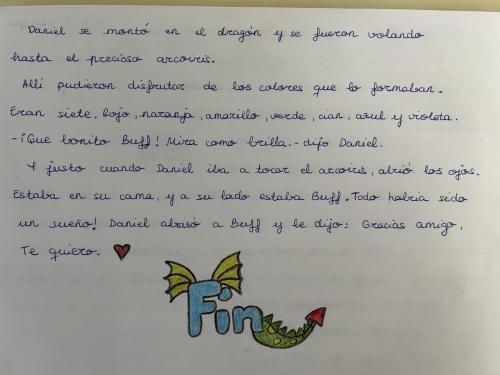 Daniel se montó en el dragón y se fueron volando
hasta el precioso arcoíris.
Allí pudieron disfrutar de los colores que lo formaban.
Eran siete, rojo, naranja, amarillo, verde, cian, azul y violeta.
-¡Que bonito Buff! Mira como brilla.- dijo Daniel.
Y justo cuando Daniel iba a tocar el arcoíris, abrió los ojos.
Estaba en su cama, y a su lado estaba Buff. Todo había sido
un sueño! Daniel abrazó a Buff y le dijo: Gracias amigo,
Te quiero.
Fin